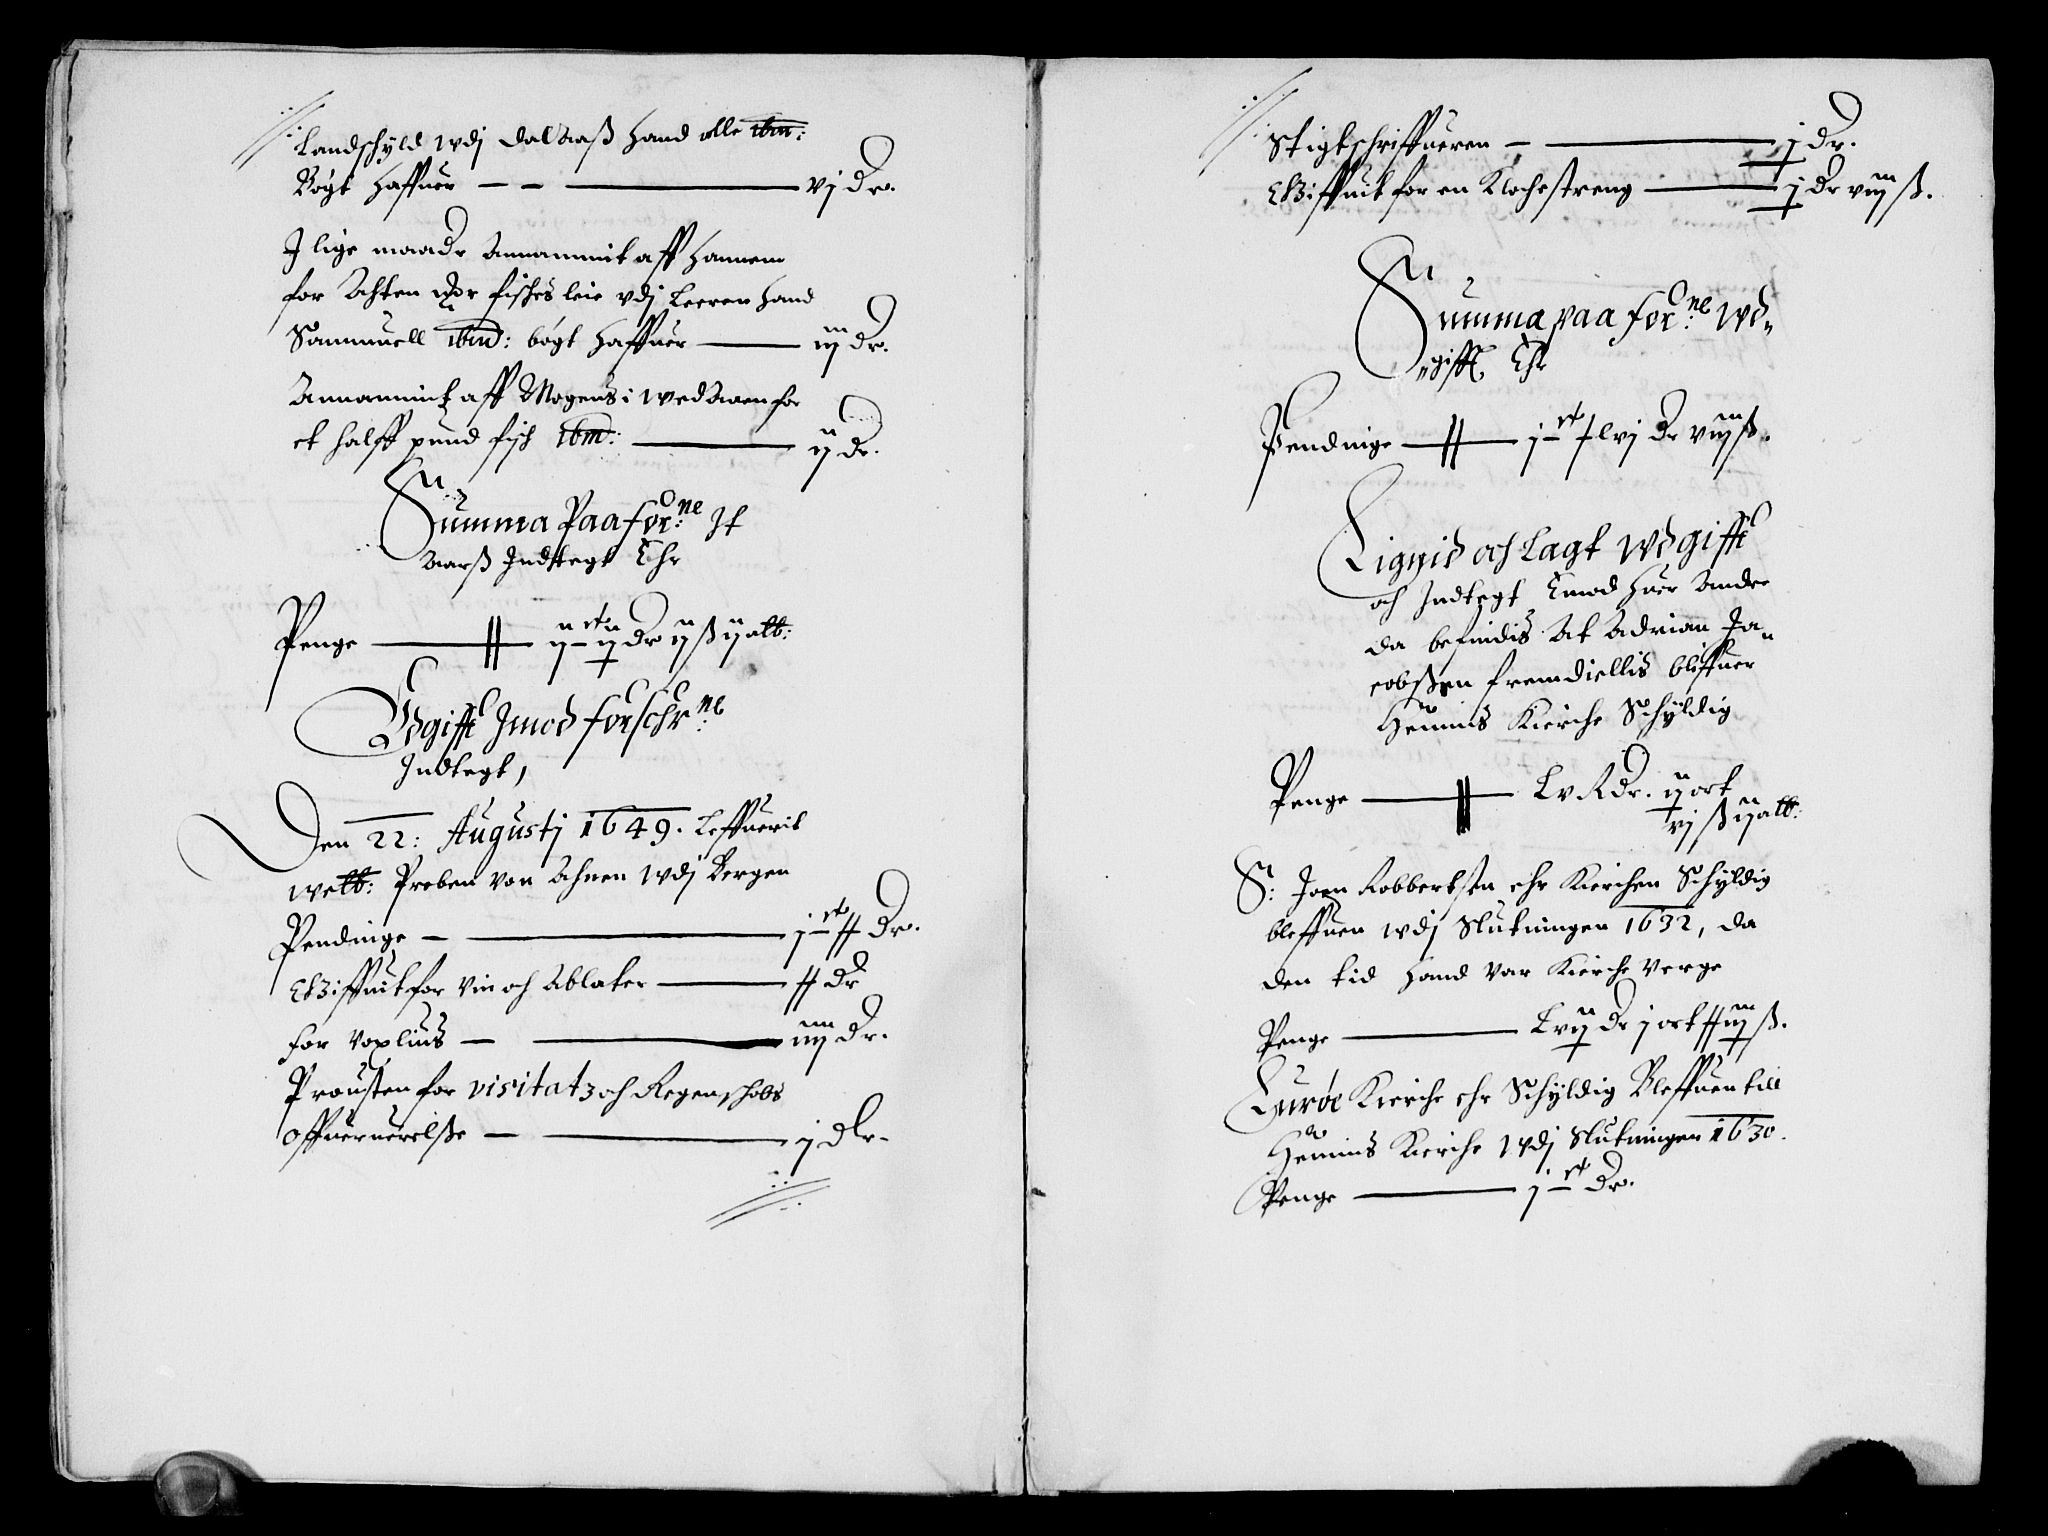 Landschyld wdj dal Aaß hand alle ibm:
Bögt haffuer — — vj dr.
J lige maade Annammit aff hannem
for Ahten fiskes leie vdj Leeren hand
Sammuell ibm: bögt haffuer — iij dr.
Annammit aff Mogens i wedAaen for
et halff pund fisk ibm: — ij dr.
Summa Paa for:ne Jt
Aarß Jndtegt Ehr
Penge — ij ct ij dr ij ß ij alb:
Wdgifft Jmod forschr:ne
Jndtegt,
Den 22: Augustj 1649. Leffuerit
welb: Preben von Ahnen wdj Bergen
Pendinge — j ct ꝟ dr.
Udgiffuit for Vin och Ablater — ꝟ dr
for voxliuß — iiij dr.
Prousten for visitatz och Regenschabs
offueruerelße — j dlr.
Stigtschriffueren — j dr.
Udgiffuit for en Klochestreng — j dr viij ß.
Summa paa for:ne wd„
„gifft Ehr
Pendinge — j ct lvj dr viij ß.
Lignid och Lagt wdgifft
och Jndtegt Emod huer Andre
da befindis At Adrian Ja„
cobßen fremdielis bliffuer
Heruins Kierche Schyldig
Penge — Lv Rdr. ij ort
vj ß ij alb:
S: Joen Robbertsen ehr Kierchen Schyldig
bleffuen wdj Slutningen 1632, da
den tid hand var Kierche verge
Penge — Lvij dr j ort iij ß.
Lurøe Kierche ehr Schyldig Bleffuen till
Heruins Kierche wdj Slutningen 1630.
Penge — j ct dr.